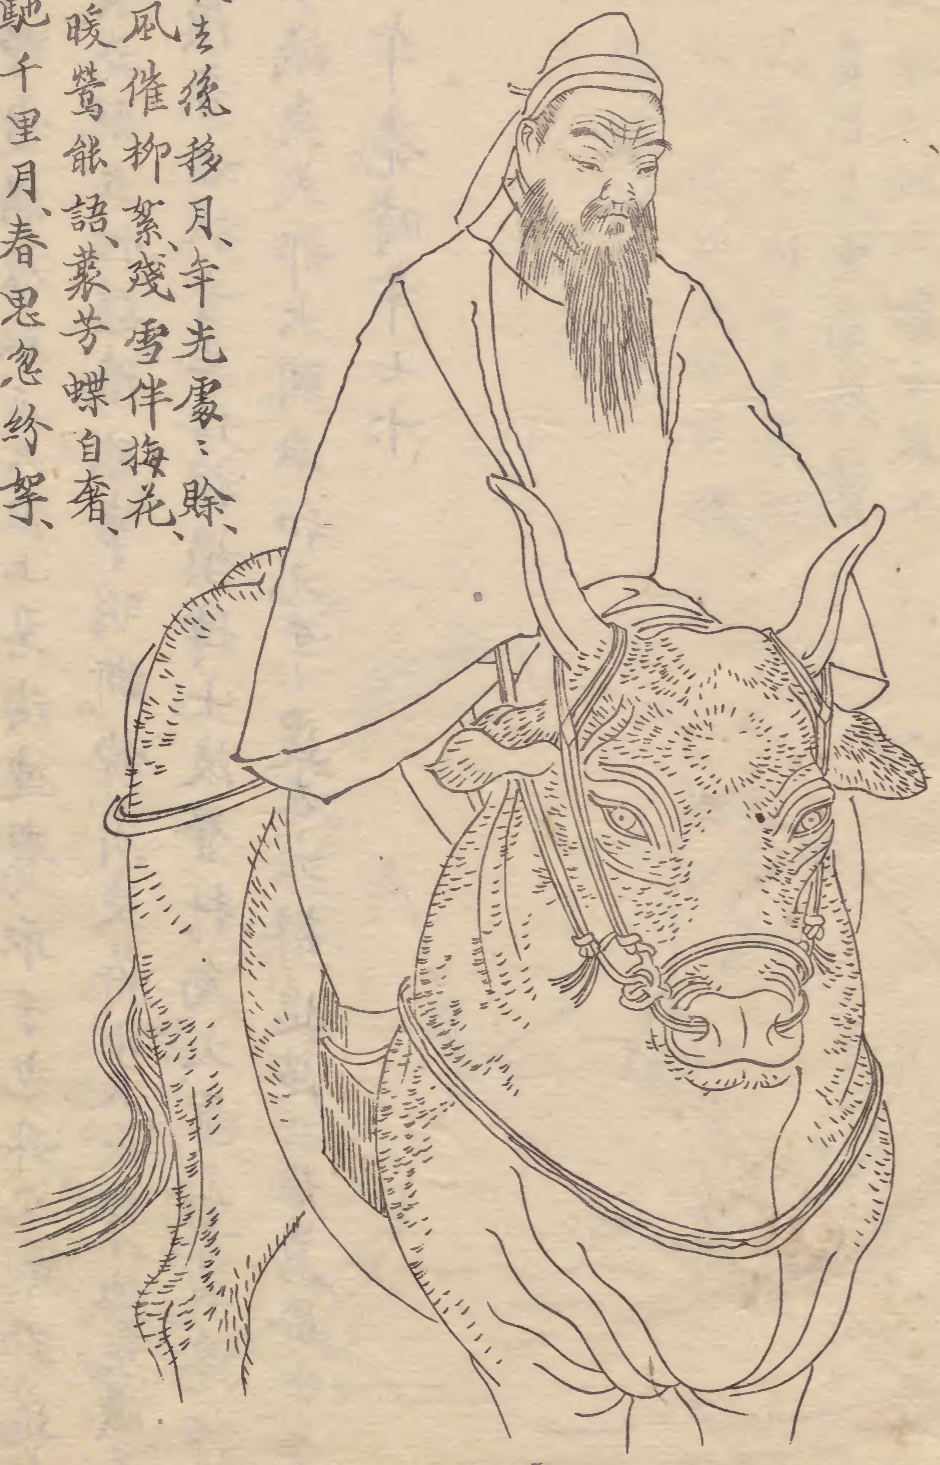 去後移月、年光處〻賒、
風催柳絮、殘雪伴梅花、
暖鶯能語、叢芳蝶自奢、
馳千里月、春思忽紛拏、